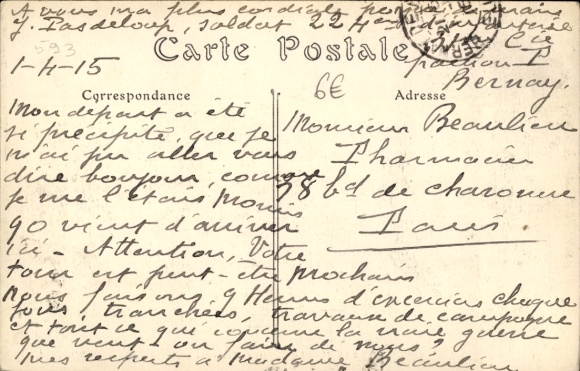 A vous ma plus cordiale poignée de mains
J. Pasdeloup, soldat 224eme d'infanterie
Cie
Bernay.
593
Carte Postale
1-4-15
6€
Correspondance
Adresse
Mon départ a été
si précipité, que je
n'ai pu aller vous
dire bonjour, comme
je me l'étais promis
90 vient d'arriver
ici - Attention, Votre
tour est peut-être prochain
Nous faisons 9 Heures d'exercices chaque
jour, tranchées, travaux de campagne
et tout ce qui concerne la vraie guerre
que veut-on faire de nous?
mes respects à Madame Beaulieu
Monsieur Beaulieu
Pharmacien
78 bd de charonne
Paris